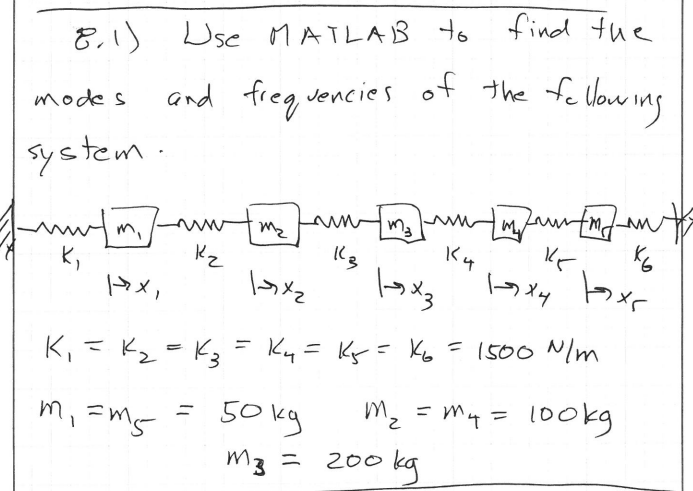 8.1) Use MATLAB to find the
modes and frequencies of the following
system.
m₁ m₂ m₃ m₄ m₅
K₁ K₂ K₃ K₄ K₅ K₆
↦x₁ ↦x₂ ↦x₃ ↦x₄ ↦x₅
K₁ = K₂ = K₃ = K₄ = K₅ = K₆ = 1500 N/m
m₁ = m₅ = 50 kg m₂ = m₄ = 100 kg
m₃ = 200 kg